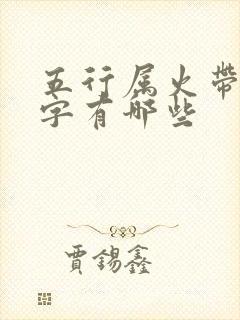 五行属火带
字有哪些
賈錫鑫